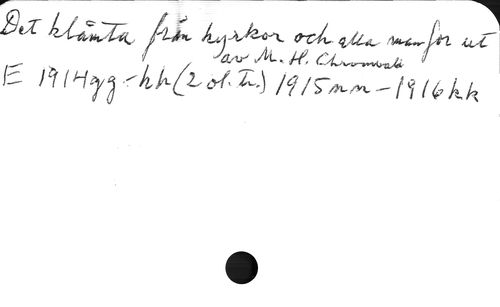 Det klämta från kyrkor och alla man for ut
av M. H.
E 1914gg-hh (2 ol. tr.) 1915nn-1916kk